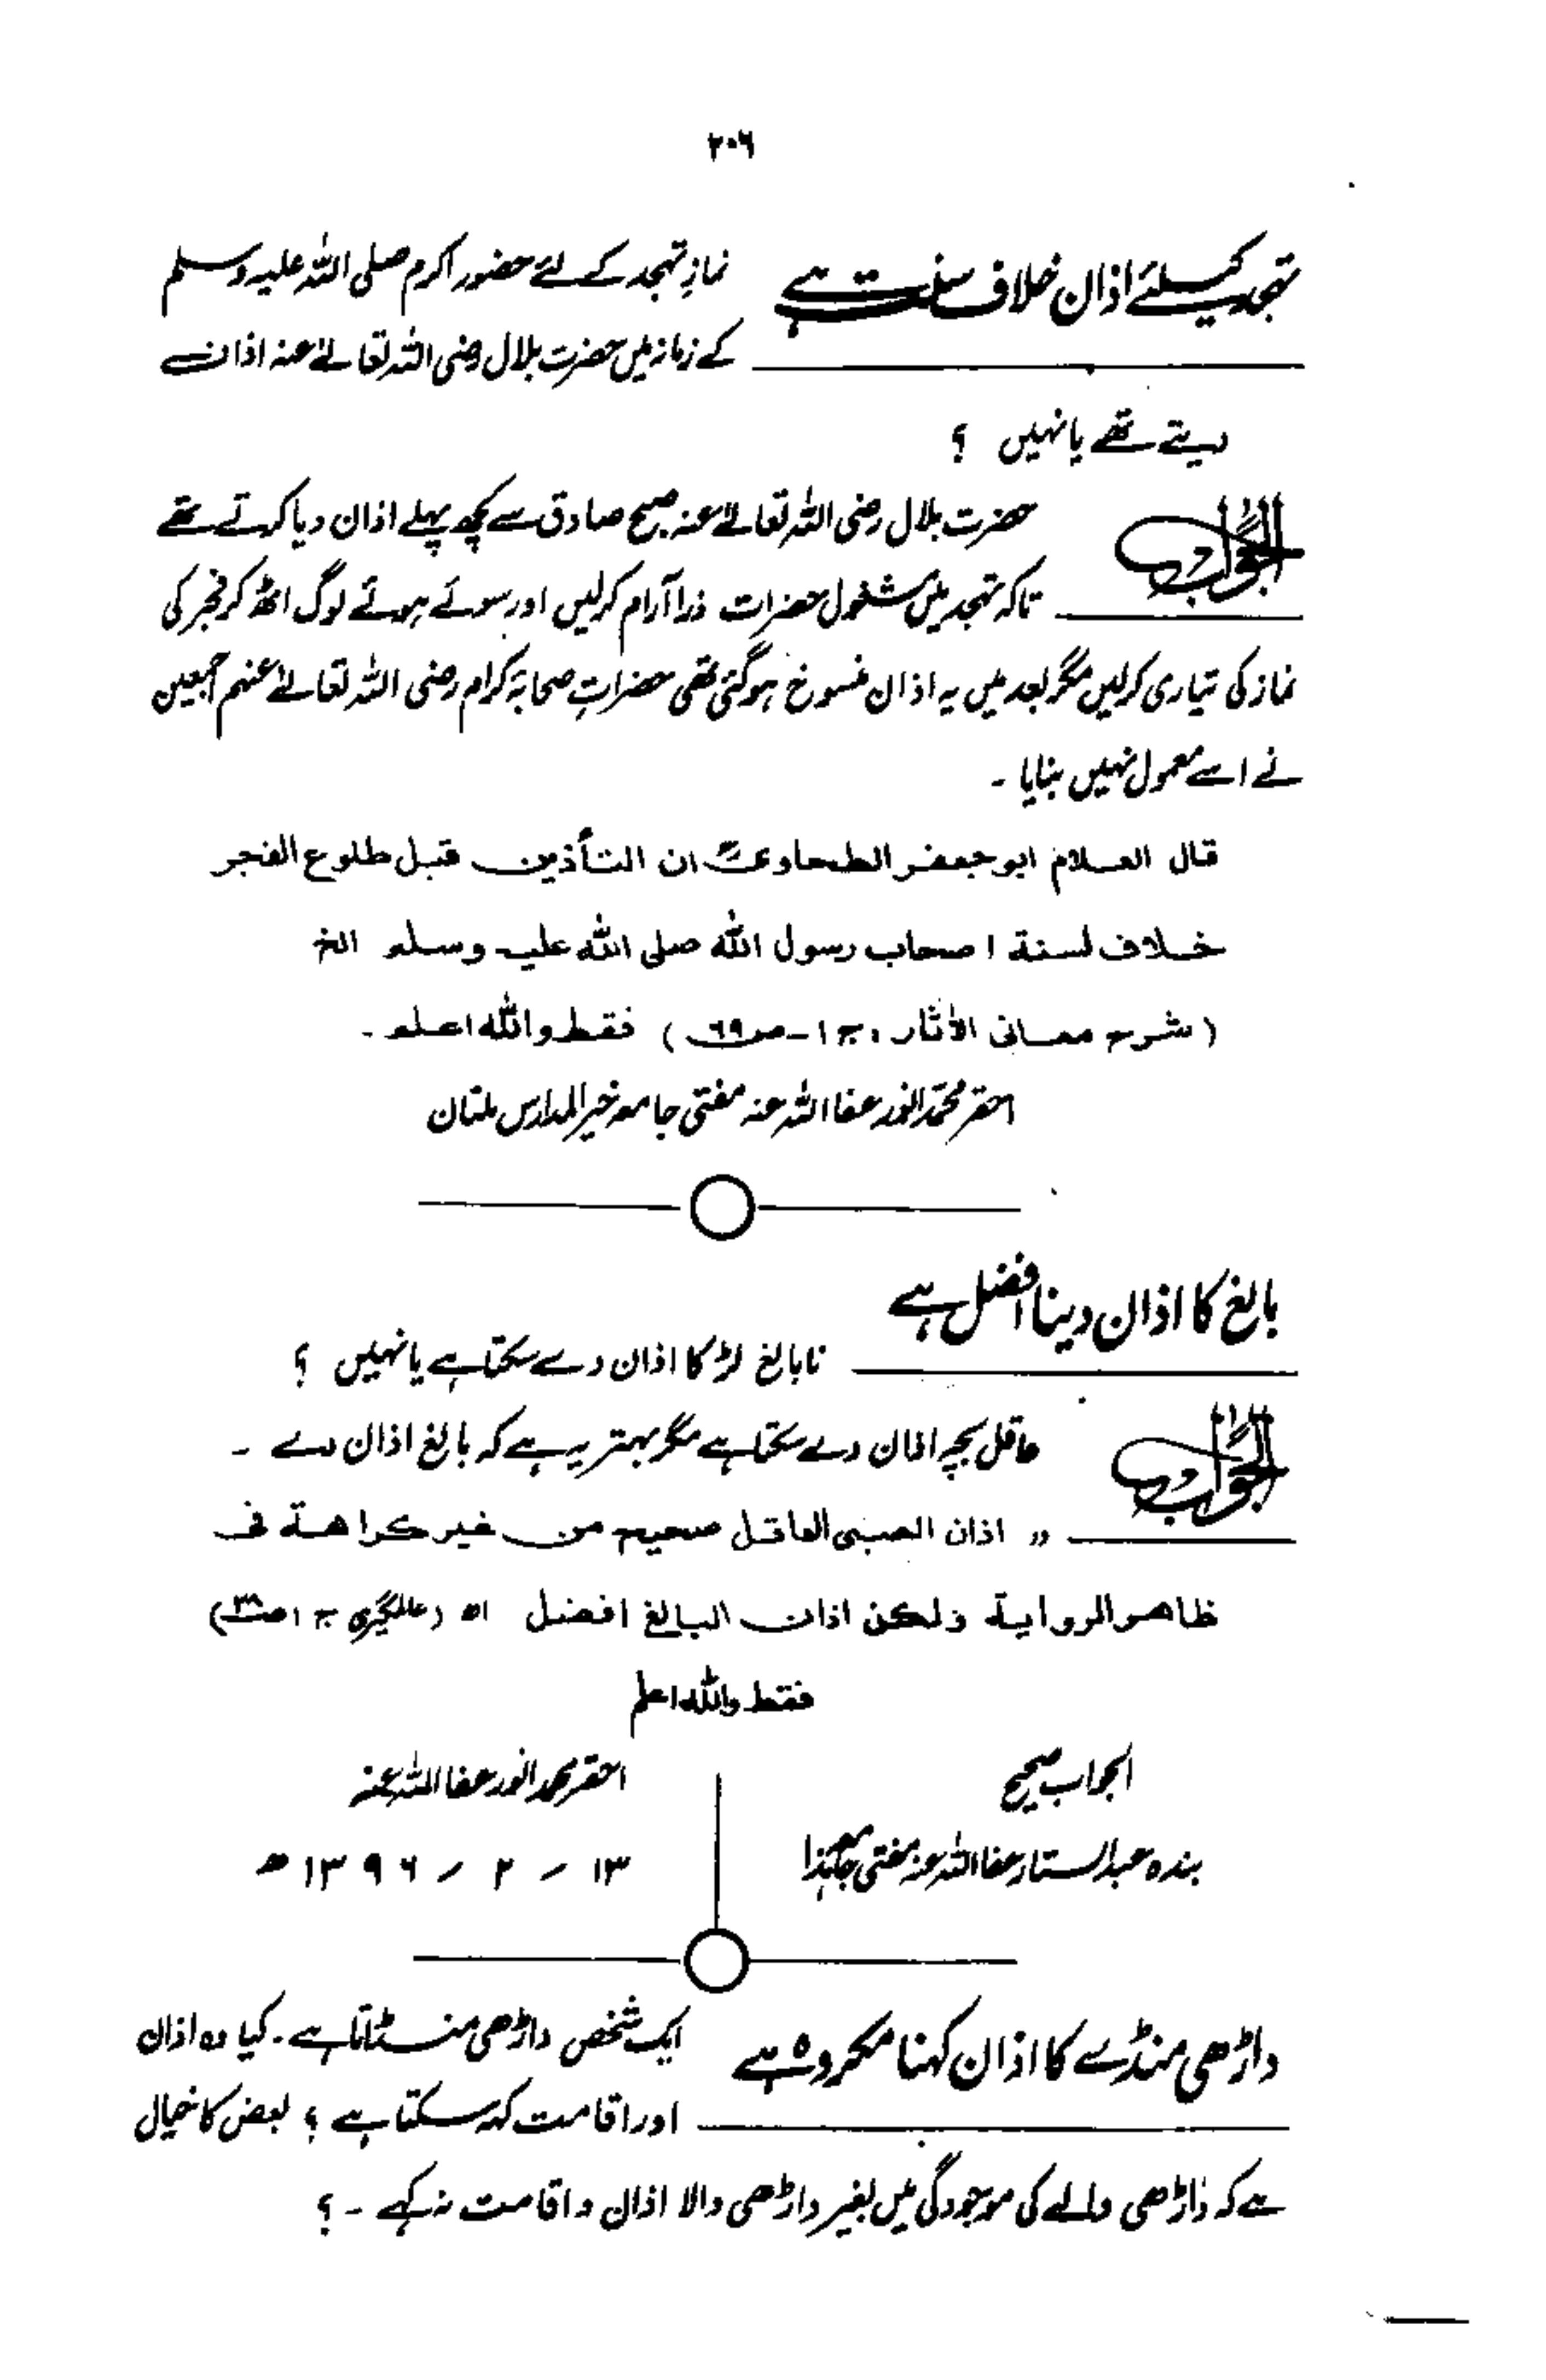 ۲۰۶
تہجد کیلئے اذان خلاف سنت ہے
نمازِ تہجد کے لئے حضور اکرم صلی اللہ علیہ وسلم
کے زمانہ میں حضرت بلال رضی اللہ تعالےٰ عنہ اذان
دیتے تھے یا نہیں ؟
الجواب
حضرت بلال رضی اللہ تعالےٰ عنہ صبح صادق سے کچھ پہلے اذان دیا کرتے تھے
تاکہ تہجد میں مشغول حضرات ذرا آرام کرلیں اور سوئے ہوئے لوگ اٹھ کر فجر کی
نماز کی تیاری کرلیں مگر بعد میں یہ اذان منسوخ ہوگئی تھی حضراتِ صحابۂ کرام رضی اللہ تعالےٰ عنہم اجمعین
نے اسے معمول نہیں بنایا ۔
قال العلام ابوجعفر الطحاویؒ ان التأذین قبل طلوع الفجر
خلاف لسنة اصحاب رسول اللہ صلی اللہ علیہ وسلم الخ
(شرح معانی الأثار، ج۱ ـ ص۶۹) فقط واللہ اعلم ۔
احقر محمد انور عفا اللہ عنہ مفتی جامعہ خیر المدارس ملتان
بالغ کا اذان دینا افضل ہے
نابالغ لڑکا اذان دے سکتا ہے یا نہیں ؟
الجواب
عاقل بچہ اذان دے سکتا ہے مگر بہتر یہ ہے کہ بالغ اذان دے ۔
" اذان الصبی العاقل صحیح من غیر کراھة فی
ظاھر الروایة ولکن اذان البالغ افضل اھ (عالمگیری ج ۱ ص۳۸)
فقط واللہ اعلم
الجواب صحیح
بندہ عبدالستار عفا اللہ عنہ مفتی جامعہ ہذا
احقر محمد انور عفا اللہ عنہ
۱۳ ؍ ۲ ؍ ۱۳۹۶ ھ
داڑھی منڈے کا اذان کہنا مکروہ ہے
ایک شخص داڑھی منڈاتا ہے ۔ کیا وہ اذان
اور اقامت کہہ سکتا ہے ؟ بعض کا خیال
ہے کہ داڑھی والے کی موجودگی میں بغیر داڑھی والا اذان و اقامت نہ کہے ۔ ؟